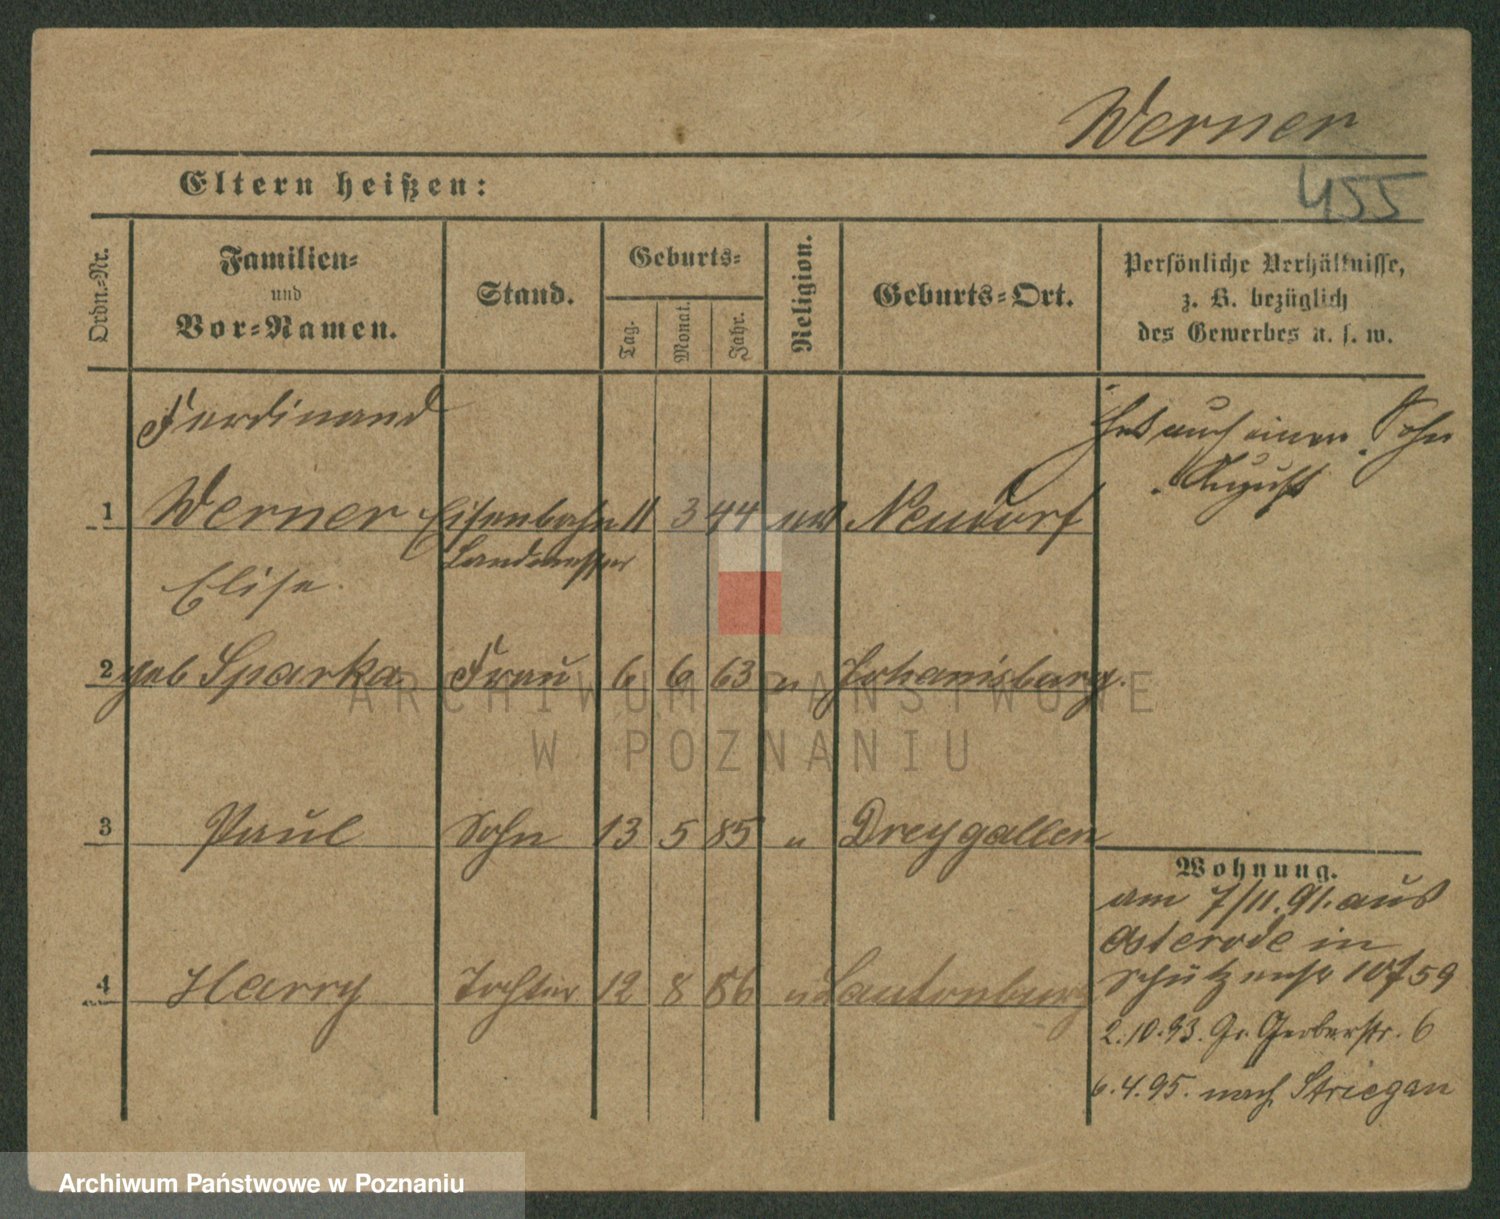 Werner
Eltern heißen:
455
Ordn.-Nr.
Familien-
und
Vor-Namen.
Stand.
Geburts-
Tag.
Monat.
Jahr.
Religion.
Geburts-Ort.
Persönliche Verhältnisse,
z. B. bezüglich
des Gewerbes u. s. w.
Ferdinand
hat auch einen Sohn
August
1 Werner Eisenbahn 11 3 44 Neudorf
Landmesser
Elise
2 geb Sparka Frau 6 6 63 u Johanisburg.
3 Paul Sohn 13 5 85 u Dreygallen
Wohnung.
am 7/11.91. aus
Osterode in
4 Harry Tochter 12 8 86 u Lautenburg
Schützenstr 10 59
2.10.93. Gr. Gerberstr. 6
6.4.95. nach Striegau
ARCHIWUM PAŃSTWOWE
W POZNANIU
Archiwum Państwowe w Poznaniu